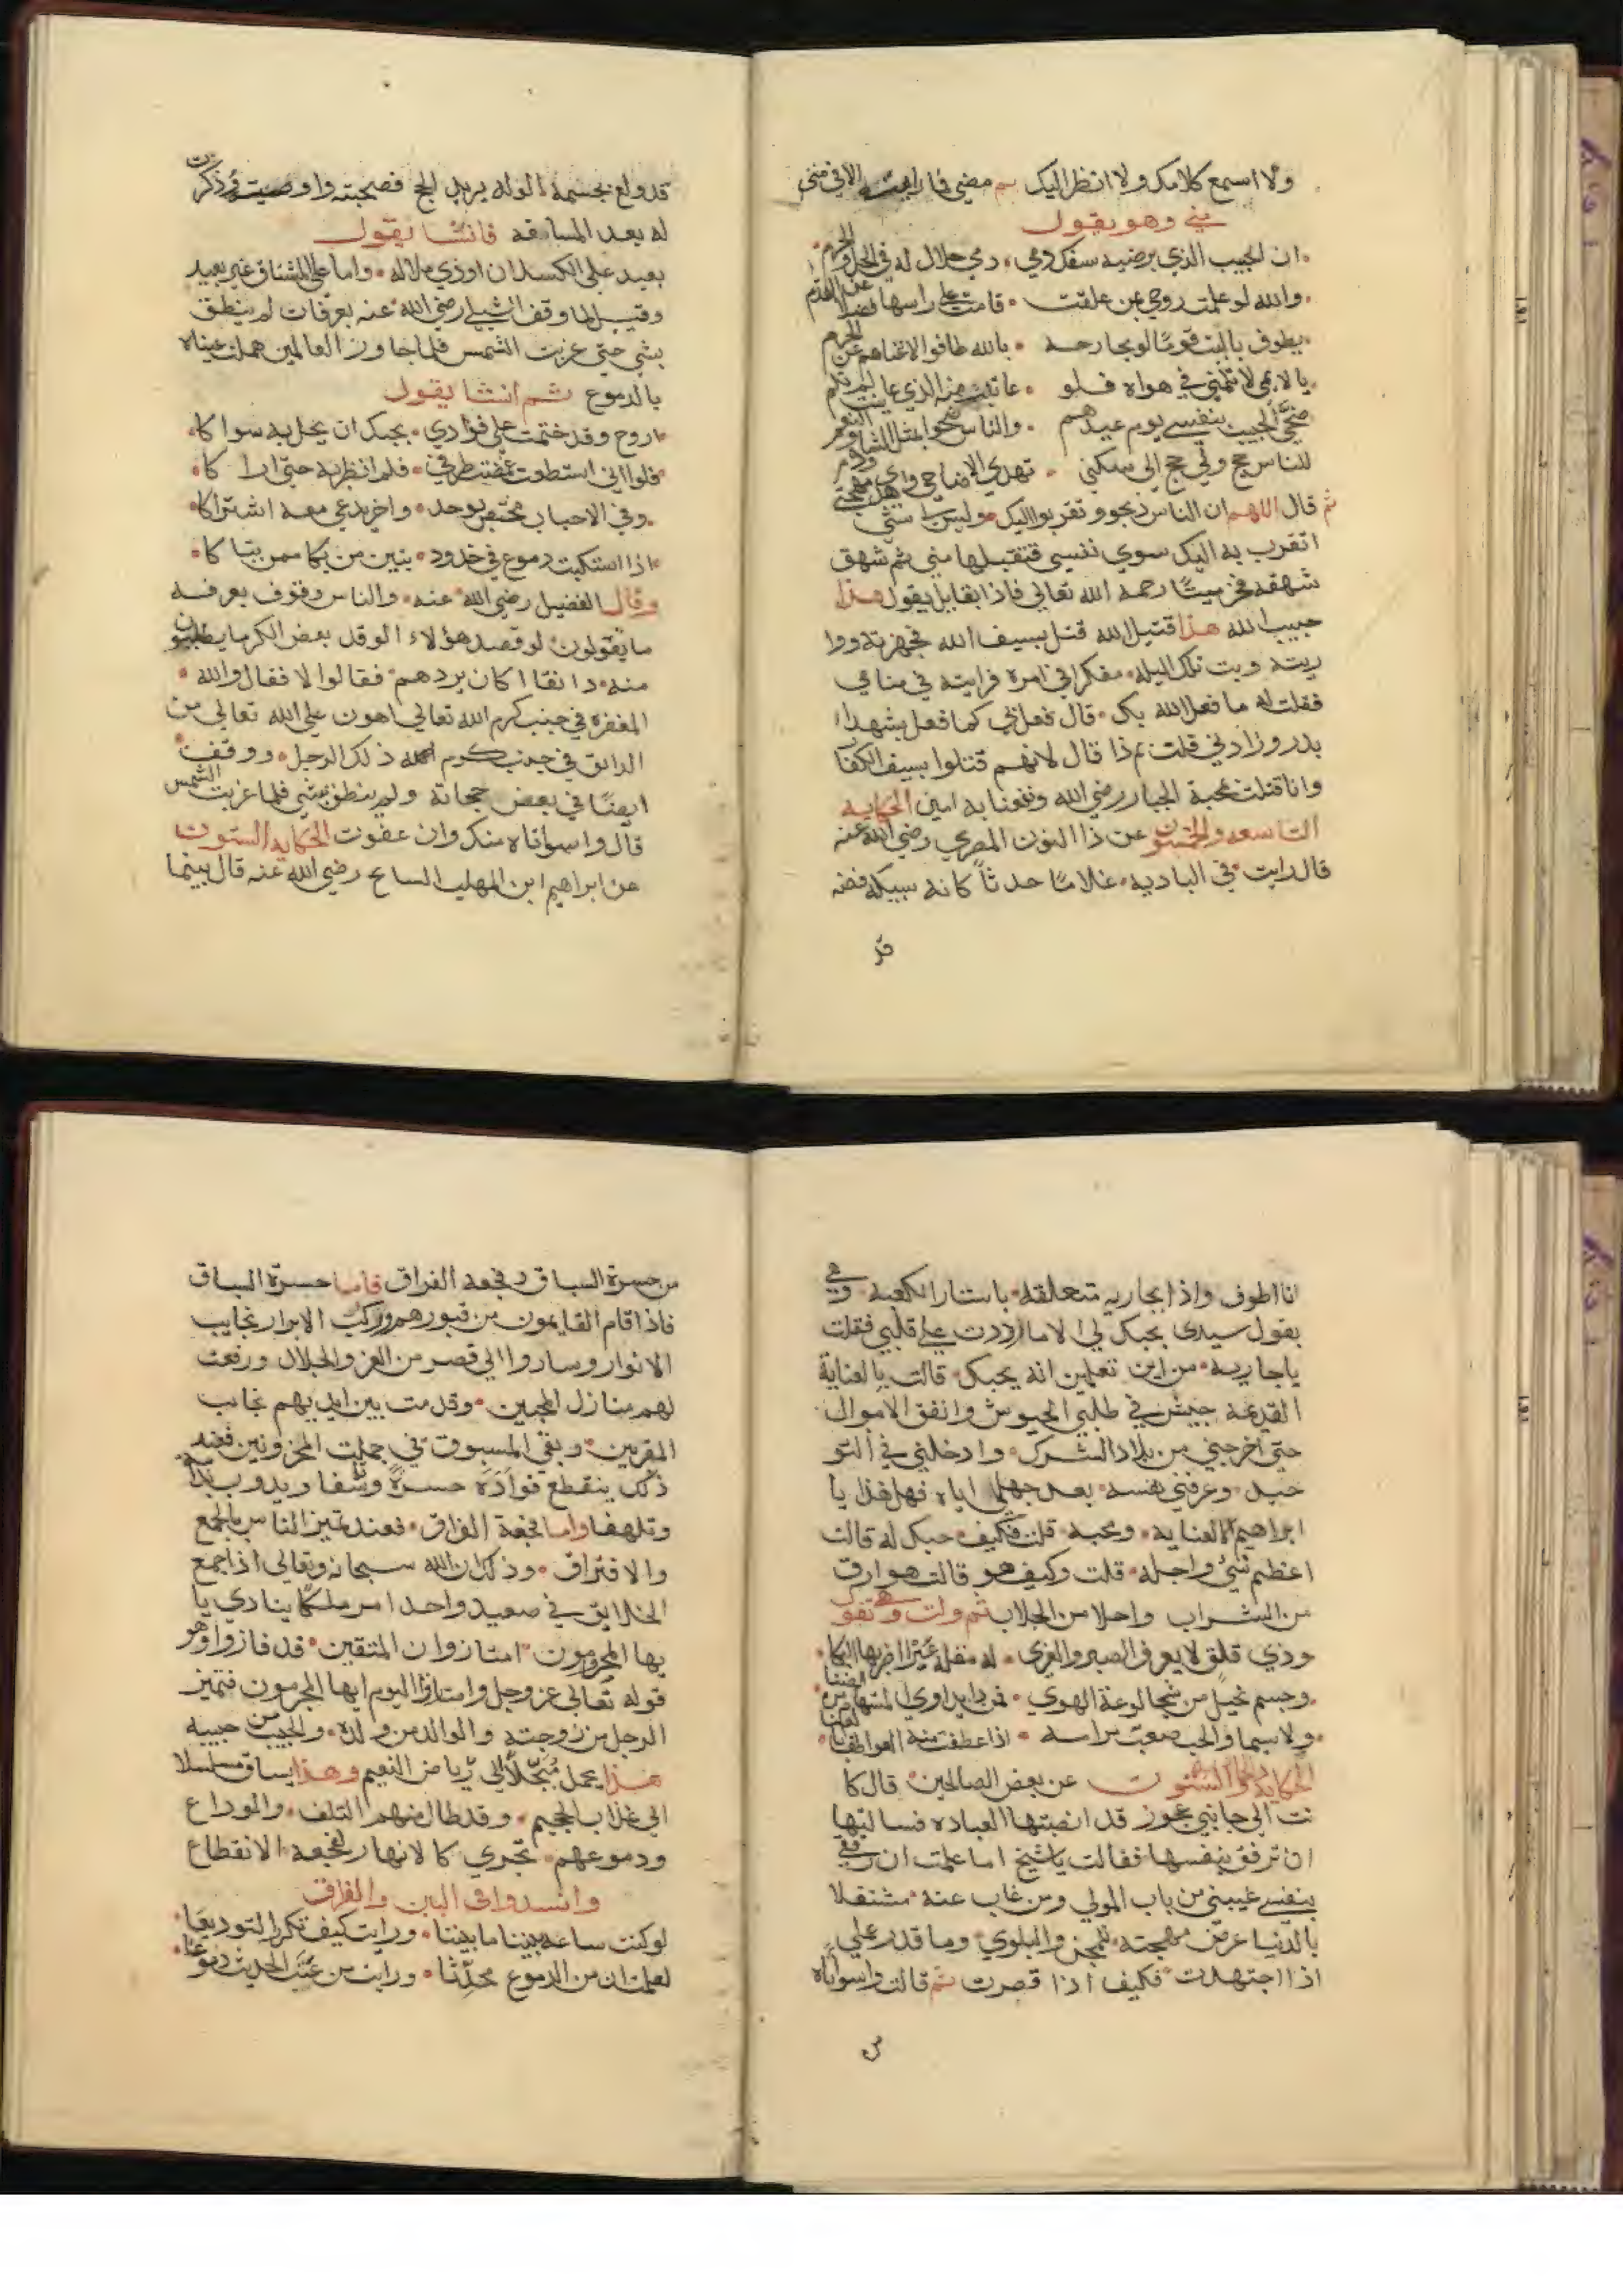 ولا اسمع كلامك ولا انظر اليك ثم مضى فما رايته الا في منى
مني وهو يقول
ان الحبيب الذي يرضيه سفك دمي دمي حلال له في الحل والحرم
والله لو علمت روحي بمن علقت قامت على راسها فضلا عن القدم
يطوف بالبيت قوما لو بجارحة بالله طافوا لاغناهم عن الحرم
يا لايمي لا تلمني في هواه فلو عاينت منه الذي عاينت لم تلم
ضحى الحبيب بنفسي يوم عيدهم والناس ضحوا بمثل الشاء والنعم
للناس حج ولي حج الى سكني تهدي الاضاحي واهدي مهجتي ودم
ثم قال اللهم ان الناس ذبحوا وتقربوا اليك وليس لي شي
اتقرب به اليك سوي نفسي فتقبلها مني ثم شهق
شهقة فخر ميتا رحمه الله تعالى فاذا بقايل يقول هذا
حبيب الله هذا قتيل الله قتل بسيف الله فجهزته ووا
ريته وبت تلك الليله مفكرا في امره فرايته في منامي
فقلت له ما فعل الله بك قال فعل بي كما فعل بشهدا
بدر وزادني قلت لم ذا قال لانهم قتلوا بسيف الكفا
وانا قتلت بمحبة الجبار رضي الله ونفعنا به امين الحكايه
التاسعه والخمسون عن ذا النون المصري رضي الله عنه
قال رايت في الباديه غلاما حدثا كانه سبيكه فضه
قد ولع بجسمه الوله يريد الحج فصحبته واوصيت وذكرت
له بعد المسافه فانشا يقول
بعيد على الكسلان او ذي ملاله واما على المشتاق غير بعيد
وقيل لما وقف الشبلي رضي الله عنه بعرفات لم ينطق
بشي حتى غربت الشمس فلما جاوز العالمين هملت عيناه
بالدموع ثم انشا يقول
اروح وقد ختمت على فوادي بحبك ان يحل به سواكا
فلو اني استطعت غضضت طرفي فلم انظر به حتى اراكا
وفي الاحباب مختص بوجد واخر يدعي معه اشتراكا
اذا استكبت دموع في خدود تبين من بكا ممن تباكا
وقال الفضيل رضي الله عنه والناس وقوف بعرفه
ما تقولون لو قصد هؤلاء الوفد بعض الكرما يطلبون
منه دانقا اكان يردهم فقالوا لا فقال والله
المغفره في جنب كرم الله تعالى اهون على الله تعالى من
الدانق في جنب كرم ذلك الرجل ووقف
ايضا في بعض حجاته ولم ينطق بشي فلما غربت الشمس
قال واسواتاه منك وان عفوت الحكايه الستون
عن ابراهيم ابن المهلب السايح رضي الله عنه قال بينما
انا اطوف واذا بجاريه متعلقه باستار الكعبه وهي
تقول سيدي بحبك لي الا ما رددت علي قلبي فقلت
يا جاريه من اين تعلمين انه يحبك قالت بالعناية
القديمة جيش في طلبي الجيوش وانفق الاموال
حتى اخرجني من بلاد الشرك وادخلني في التو
حيد وعرفني نفسه بعد جهلي اياه فهل هذا يا
ابراهيم الا لعنايه ومحبه قلت فكيف حبك له قالت
اعظم شي واجله قلت وكيف هو قالت هو ارق
من الشراب واحلا من الجلاب ثم ولت وهي تقول
وذي قلق لا يعرف الصبر والعزى له مقلة عبرا اضر بها البكا
وجسم نحيل من شجا لوعة الهوي فمن ذا يداوي المستهام من الضنا
ولا سيما والحب صعب مرامه اذا عطفت منه العواطف
الحكايه الستون عن بعض الصالحين قال كا
نت الى جانبي عجوز قد انصبتها العباده فسالتها
ان ترفق بنفسها فقالت يا شيخ اما علمت ان رفقي
بنفسي غيبني من باب المولي ومن غاب عنه مشتغلا
بالدنيا عرض مهجته للمحن والبلوي وما قدر عملي
اذا اجتهدت فكيف اذا قصرت ثم قالت واسواتاه
من حسرة السباق وفجعه الفراق فاما حسرة السباق
فاذا قام القايمون من قبورهم وركب الابرار نجايب
الانوار وساروا الى قصر من العز والجلال ورفعت
لهم منازل المحبين وقدمت بين ايديهم نجايب
المقربين وبقي المسبوق في جملت المحزونين فعند
ذلك ينقطع فواده حسرة وتاسفا ويدوب ندامة
وتلهفا واما فجعة الفراق فعند تميز الناس بالجمع
والافتراق وذلك ان الله سبحانه وتعالى اذا جمع
الخلايق في صعيد واحد امر ملكا ينادي يا
يها المجرمون امتازوا ان المتقين قد فازوا وهو
قوله تعالى عز وجل وامتازوا اليوم ايها المجرمون فتميز
الرجل من زوجته والوالد من ولده والحبيب من حبيبه
هذا يحمل مبجلا الى رياض النعيم وهذا يساق مسلسلا
الى عذاب الجحيم وقد طال منهم التلف والوداع
ودموعهم تجري كالانهار لفجعة الانقطاع
وانشدوا في البين والفراق
لو كنت ساعة بيننا ما بيننا ورايت كيف نكرر التوديعا
لعلمت ان من الدموع محدثا ورايت من الحديث دموعا